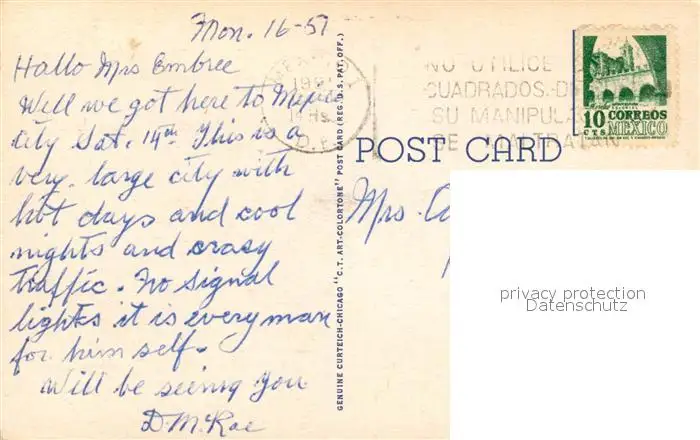 Mon. 16-57
Hallo Mrs Embree
Well we got here to Mexico
City Sat. 14th. This is a
very large city with
hot days and cool
nights and crazy
traffic. No signal
lights it is every man
for him self.
Will be seeing you
D McRae
GENUINE CURTEICH-CHICAGO "C.T. ART-COLORTONE" POST CARD (REG. U.S. PAT. OFF.)
D.F.
NO UTILICE
CUADRADOS
SU MANIPULA
SE MALTRATAN
10 CTS
CORREOS
MEXICO
POST CARD
Mrs.
privacy protection
Datenschutz